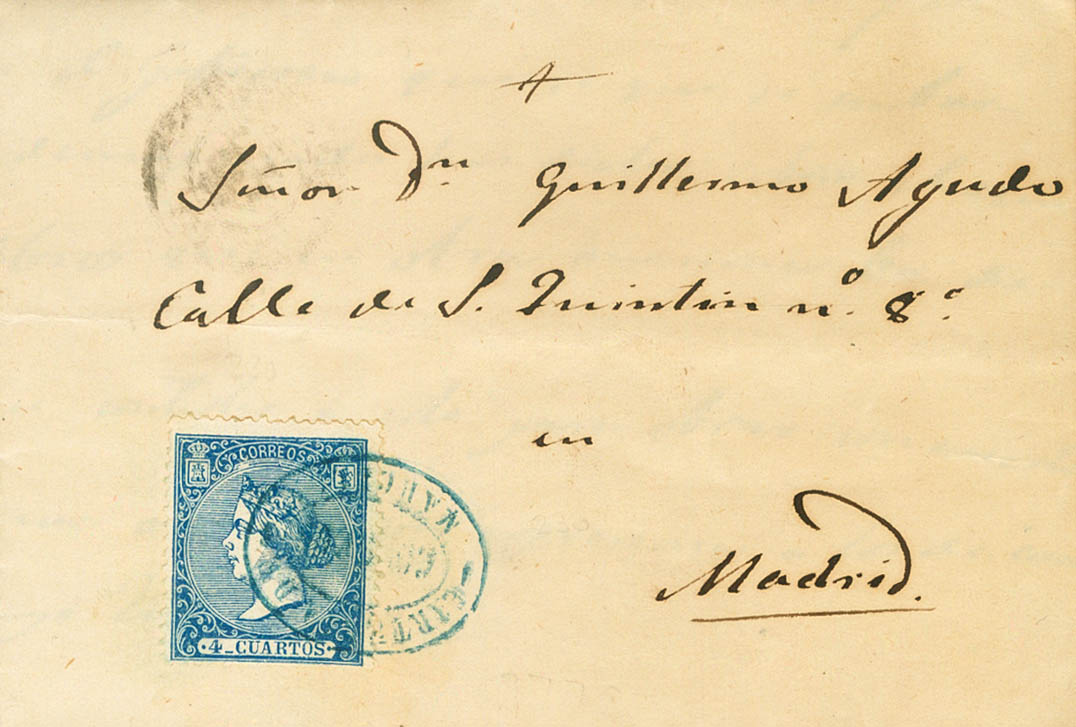 Señor Dn Guillermo Agudo
Calle de S. Quintin nº. 8º
en
Madrid.
CORREOS
4_CUARTOS